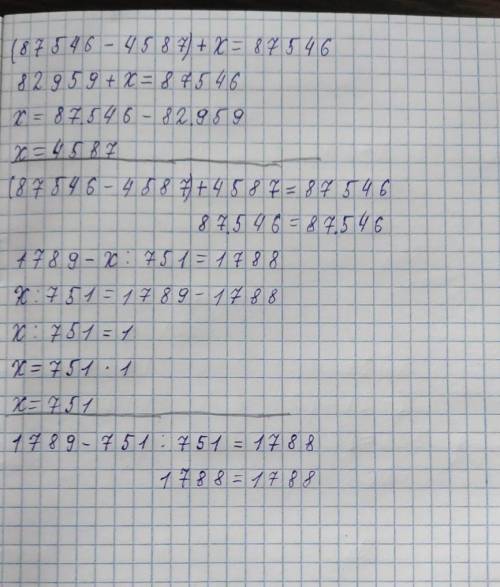 (87546 - 4587) + x = 87546
82959 + x = 87546
x = 87.546 - 82.959
x = 4587
(87546 - 4587) + 4587 = 87546
87.546 = 87.546
1789 - x : 751 = 1788
x : 751 = 1789 - 1788
x : 751 = 1
x = 751 · 1
x = 751
1789 - 751 : 751 = 1788
1788 = 1788